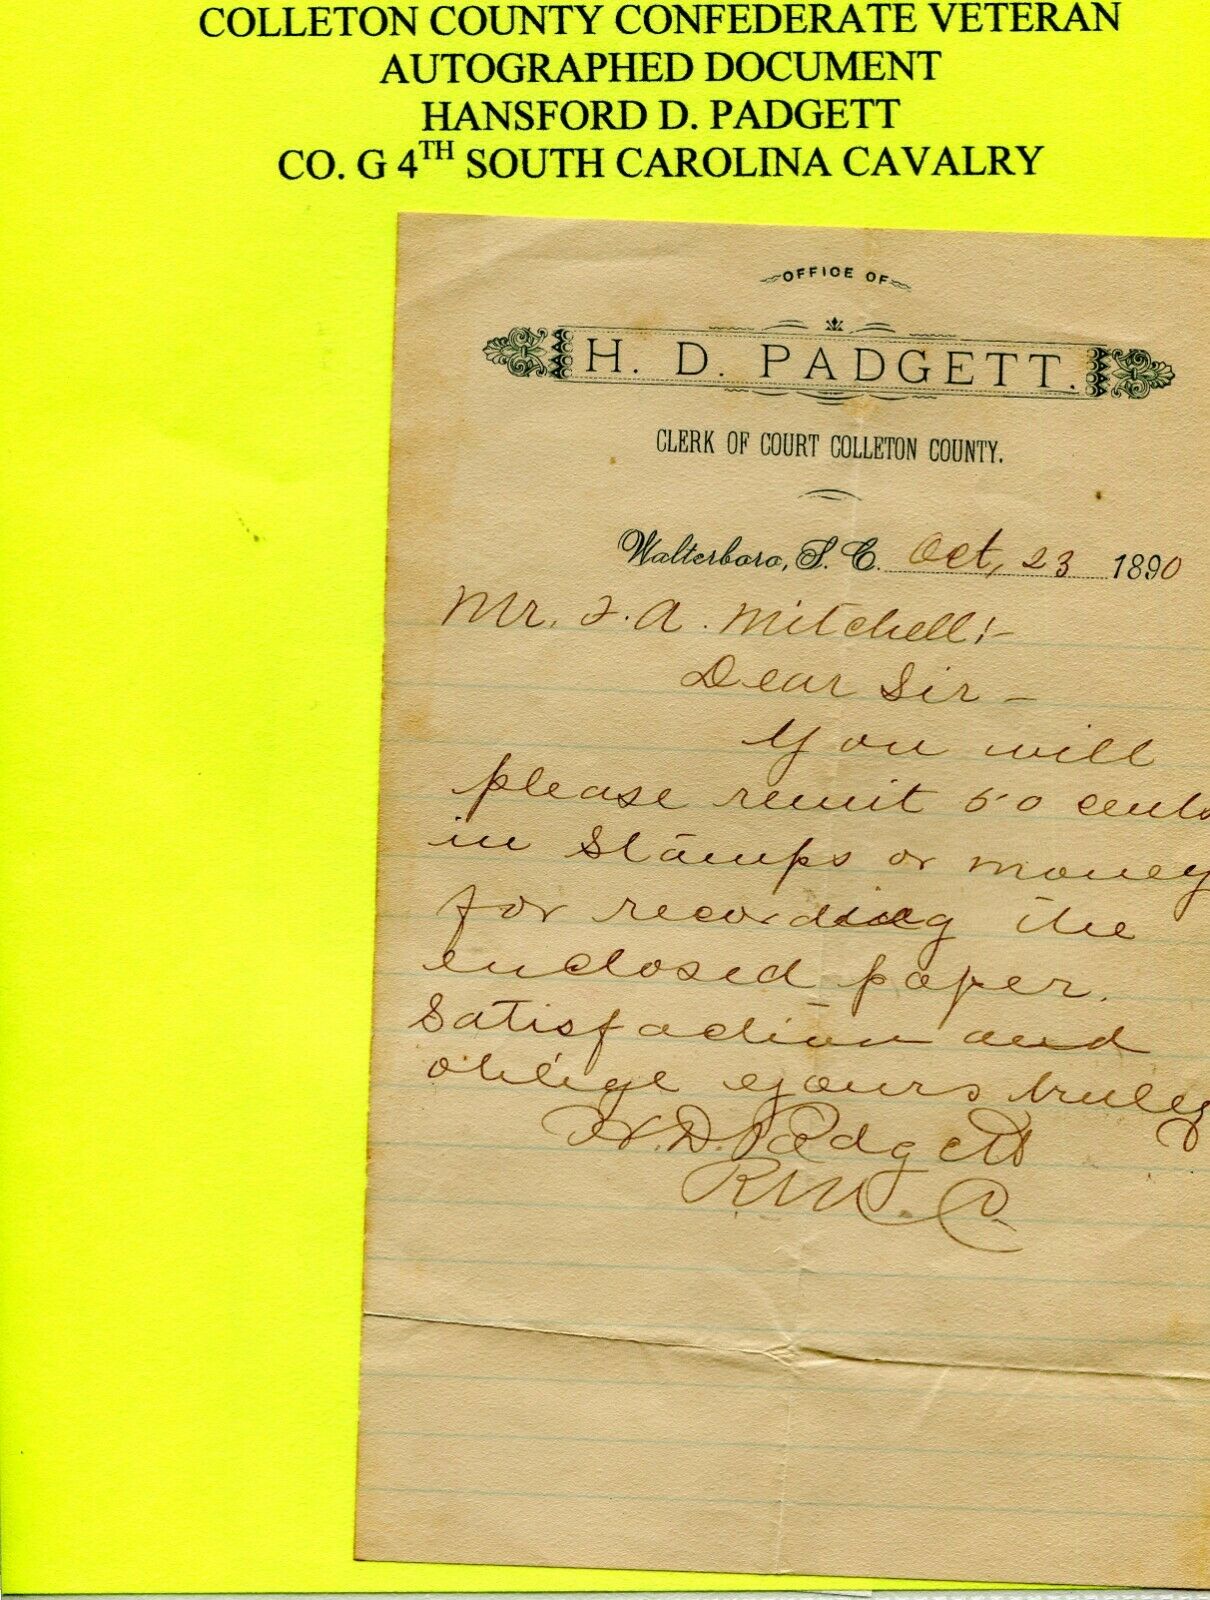 COLLETON COUNTY CONFEDERATE VETERAN
AUTOGRAPHED DOCUMENT
HANSFORD D. PADGETT
CO. G 4TH SOUTH CAROLINA CAVALRY
OFFICE OF
H. D. PADGETT.
CLERK OF COURT COLLETON COUNTY.
Walterboro, S. C. Oct, 23 1890
Mr. J. A. Mitchell:-
Dear Sir -
You will
please remit 50 cents
in Stamps or money
for recording the
enclosed paper.
Satisfaction and
oblige yours truly
H. D. Padgett
R.M.C.